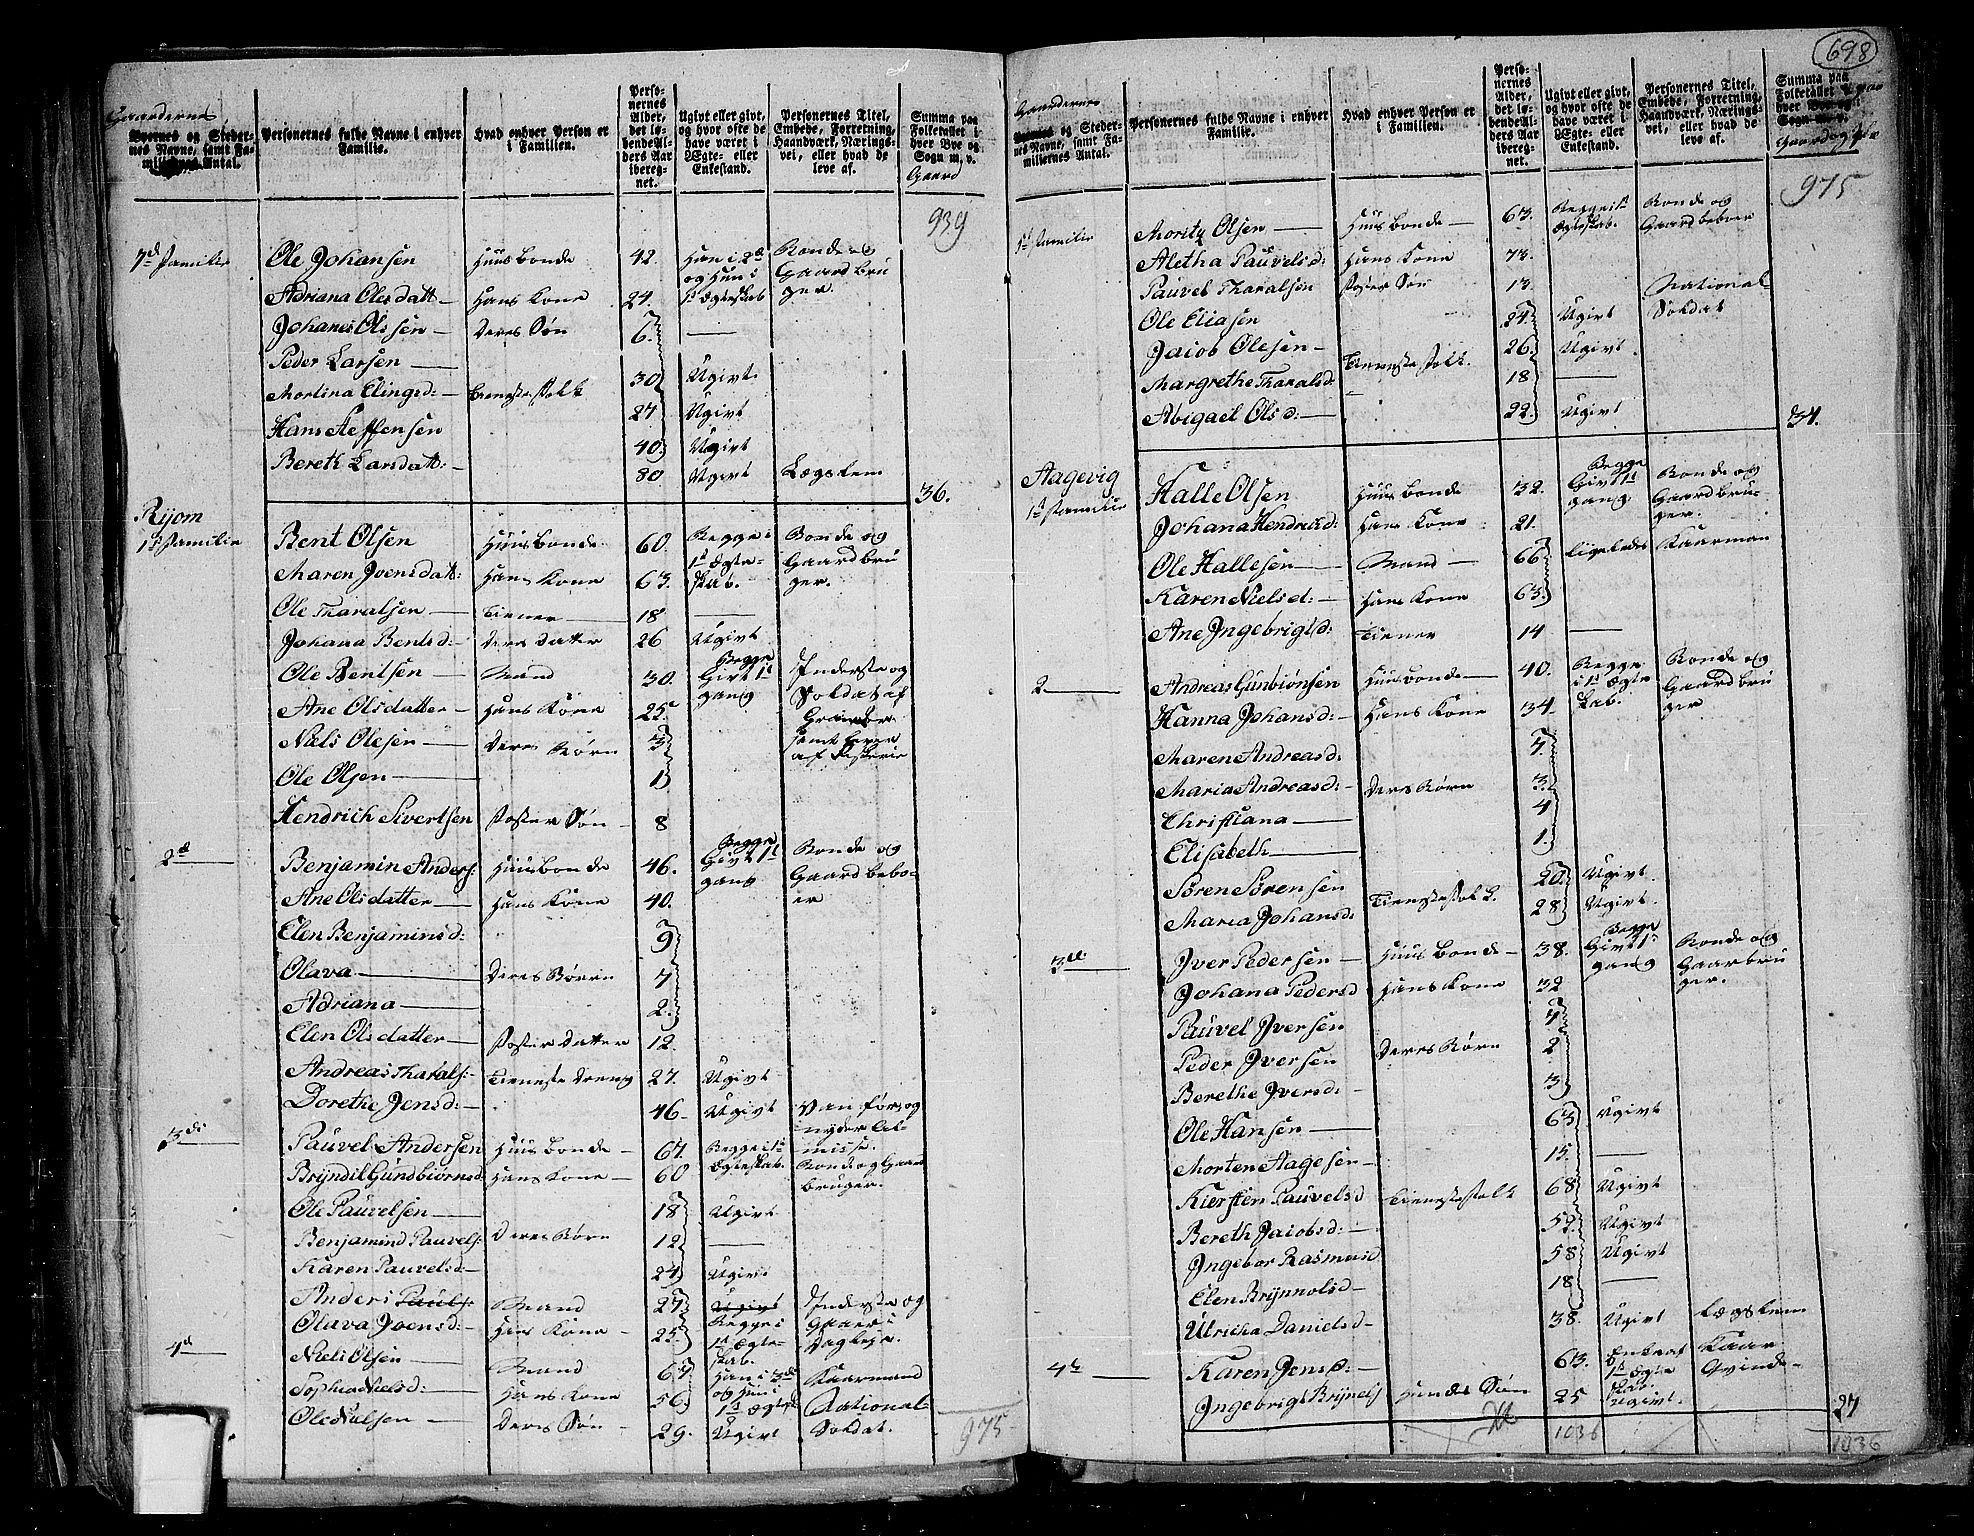 698
Gaardernes
Byernes og Steder-
nes Navne, samt Fa-
miliernes Antal.
Personernes fulde Navne i enhver
Familie.
Hvad enhver Person er
i Familien.
Perso-
nernes
Alder,
det lø-
bende Al-
ders Aar
ibereg-
net.
Ugivt eller givt,
og hvor ofte de
have været i
Ægte- eller
Enkestand.
Personernes Titel,
Embede, Forretning,
Haandværk, Nærings-
vei, eller hvad de
leve af.
Summa paa
Folketallet i
hver Bye og
Sogn m. v.
Gaard
939
7d Familie Ole Johansen Huusbonde 42 Han i 2d og Hun i 1st Ægteskab Bonde og Gaardbruger
Adriana Olsdatt- Hans Kone 24
Johanes Olssen Deres Søn 6
Peder Larsen 30 Ugivt
Mortina Elingsd: Tienestefolk 24 Ugivt
Hans Steffensen 40 Ugivt
Bereth Larsdatt:- 80 Ugivt Lægslem
36.
Rijom
1st Familie Bent Olsen Huusbonde 60 Begge i 1st Ægteskab. Bonde og Gaardbruger.
Maren Joensdatt: Hans Kone 63
Ole Tharalsen Tiener 18
Johana Bentsd: Deres Datter 26 Ugivt
Ole Bentsen Mand 30 Begge Givt 1st gang Inderste og Soldat
Ane Olsdatter Hans Kone 25
Niels Olesen Deres Børn 3 samt lever af Fiskerie
Ole Olsen 1
Hendrich Sivertsen Foster Søn 8
2d Benjamin Anders: Huusbonde 46. Begge Givt 1st gang Bonde og Gaardbeboer
Ane Olsdatter Hans Kone 40.
Elen Benjaminsd: 9
Olava Deres Børn 7
Adriana 2
Elen Olsdatter Foster Datter 12.
Andreas Tharals: Tieneste Dreng 27. Ugivt
Dorethe Jensd: 46 Ugivt Vanfør og nyder Almisse.
3de Pauvel Andersen Huusbonde 67 Begge i 1st Ægteskab. Bonde og Gaardbruger.
Bryndil Gundbiørnsd Hans Kone 60
Ole Pauvelsen 18 Ugivt
Benjamind Pauvels: Deres Børn 12
Karen Pauvelsd 24 Ugivt
Anders Pauls: Mand 27 Ugivt Begge i 1st Ægteskab. Inderste og
Olava Joensd: Hans Kone 25
4d Niels Olsen Mand 67 Han i 3de og Hun i 1st Ægtesk Kaarmand
Sophia Nielsd: Hans Kone 56
Ole Nielsen Deres Søn 29. Ugivt National Soldat.
975
Gaardernes
Byernes og Steder-
nes Navne, samt Fa-
miliernes Antal.
Personernes fulde Navne i enhver
Familie.
Hvad enhver Person er
i Familien.
Perso-
nernes
Alder,
det lø-
bende Al-
ders Aar
ibereg-
net.
Ugivt eller givt,
og hvor ofte de
have været i
Ægte- eller
Enkestand.
Personernes Titel,
Embede, Forretning,
Haandværk, Nærings-
vei, eller hvad de
leve af.
Summa paa
Folketallet
hver Bye og
Sogn m. v.
975
Familie Moritz Olsen Huusbonde 63. Begge i 1st Ægteskab. Bonde og Gaardbeboer
Aletha Pauvelsd: Hans Kone 73.
Pauvel Tharalsen Foster Søn 13
Ole Eliasen 24 Ugivt National Soldat
Jacob Olesen 26 Ugivt
Margrethe Tharalsd: Tienestefolk. 18
Abigael Olsd: 22 Ugivt
34.
Aagevig
1st Familie Halle Olsen Huusbonde 32. Begge Givt 1st gang Bonde og Gaardbruger.
Johana Hendricsd: Hans Kone 21.
Ole Hallesen Mand 66 ligeledes Kaarman
Karen Nielsd: Hans Kone 63
Ane Jngebrigtsd: Tiener 14
2 Andreas Gunbiønsen Huusbonde 40. Begge i 1st Ægteskab. Bonde og Gaardbruger
Hanna Johansd: Hans Kone 34
Maren Andreasd: 7
Maria Andreasd: Deres Børn 3
Christiana 4
Elisabeth 1
Søren Sørensen 20 Ugivt
Maria Johansd: Tienestefolk. 28 Ugivt.
3de Jver Pedersen Huusbonde 38. Begge Givt 1st gang Bonde og Gaarbruger.
Johana Pedersd Hans Kone 32
Pauvel Jversen 7
Peder Jversen Deres Børn 2
Berethe Jversd: 3
Ole Hansen 63 Ugivt
Morten Aagesen 15
Kiersten Pauvelsd Tienestefolk 68 Ugivt
Bereth Jacobsd: 52 Ugivt
Jngebor Rasmusd 58 Ugivt
Elen Brynnolsd 18
Ulricha Danielsd 38. Ugivt Lægslem
4de Karen Jensd: 63. Enke af 1st Ægteskab. Kaar Qvinde
Jngebrigt Brynels Hendes Søn 25 Ugivt.
27
1036
1036